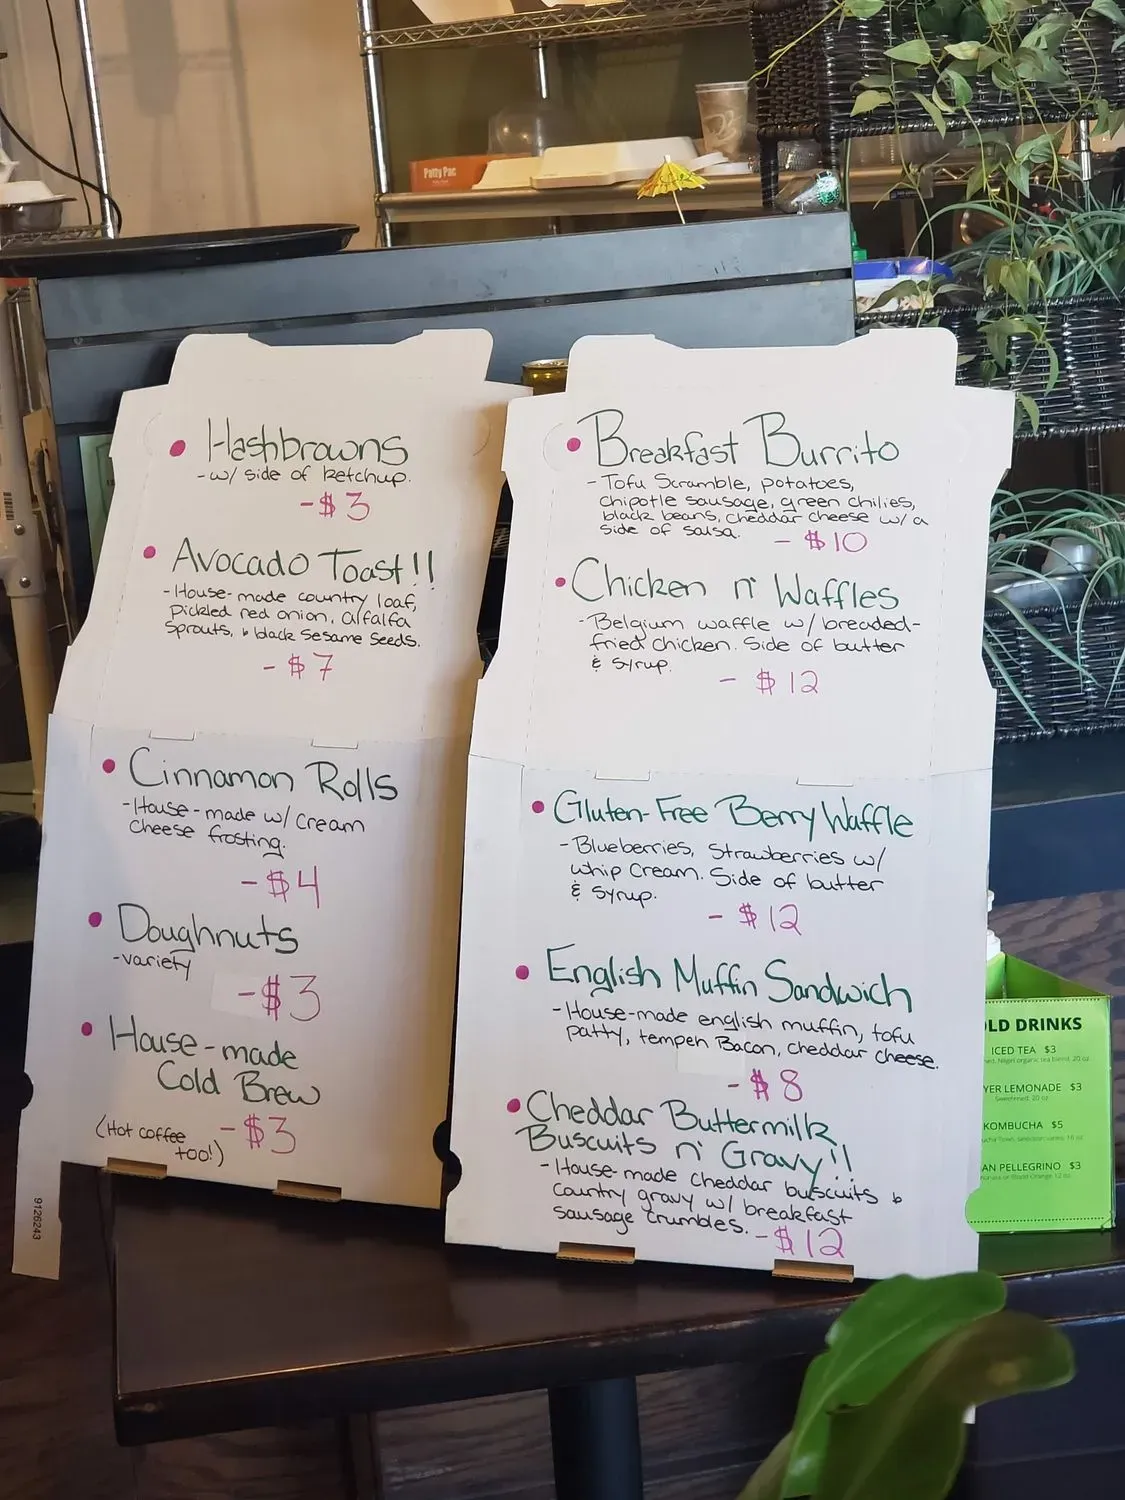 Patty Pac
• Hashbrowns
- w/ side of ketchup.
- $3
• Avocado Toast!!
- House-made country loaf,
pickled red onion, alfalfa
sprouts, & black sesame seeds.
- $7
• Cinnamon Rolls
- House-made w/ cream
cheese frosting.
- $4
• Doughnuts
- variety
- $3
• House-made
Cold Brew
- $3
(Hot coffee
too!)
9126243
• Breakfast Burrito
- Tofu Scramble, potatoes,
chipotle sausage, green chilies,
black beans, cheddar cheese w/ a
side of salsa.
- $10
• Chicken n' Waffles
- Belgium waffle w/ breaded-
fried chicken. Side of butter
& syrup.
- $12
• Gluten-Free Berry Waffle
- Blueberries, Strawberries w/
whip cream. Side of butter
& syrup.
- $12
• English Muffin Sandwich
- House-made english muffin, tofu
patty, tempeh Bacon, cheddar cheese.
- $8
• Cheddar Buttermilk
Buscuits n' Gravy!!
- House-made cheddar buscuits &
country gravy w/ breakfast
sausage crumbles.
- $12
LD DRINKS
ICED TEA $3
YER LEMONADE $3
Sweetened, 20 oz
KOMBUCHA $5
AN PELLEGRINO $3